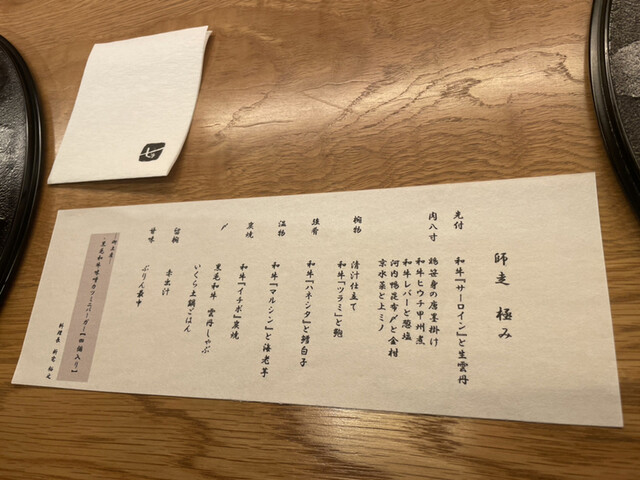 師走 極み
先付 和牛『サーロイン』と生雲丹
肉八寸 鴨笹身の唐墨掛け
和牛ヒウチ甲州煮
和牛レバーと葱塩
河内鴨昆布〆と金柑
京水菜と上ミノ
椀物 清汁仕立て
和牛『ツラミ』と鮑
強肴 和牛『ハネシタ』と鱈白子
温物 和牛『マルシン』と海老芋
炭焼 和牛『イチボ』炭焼
〆 黒毛和牛 雲丹しゃぶ
いくら土鍋ごはん
留椀 赤出汁
甘味 ぷりん最中
御土産
黒毛和牛味噌カツミニバーガー【四個入り】
料理長